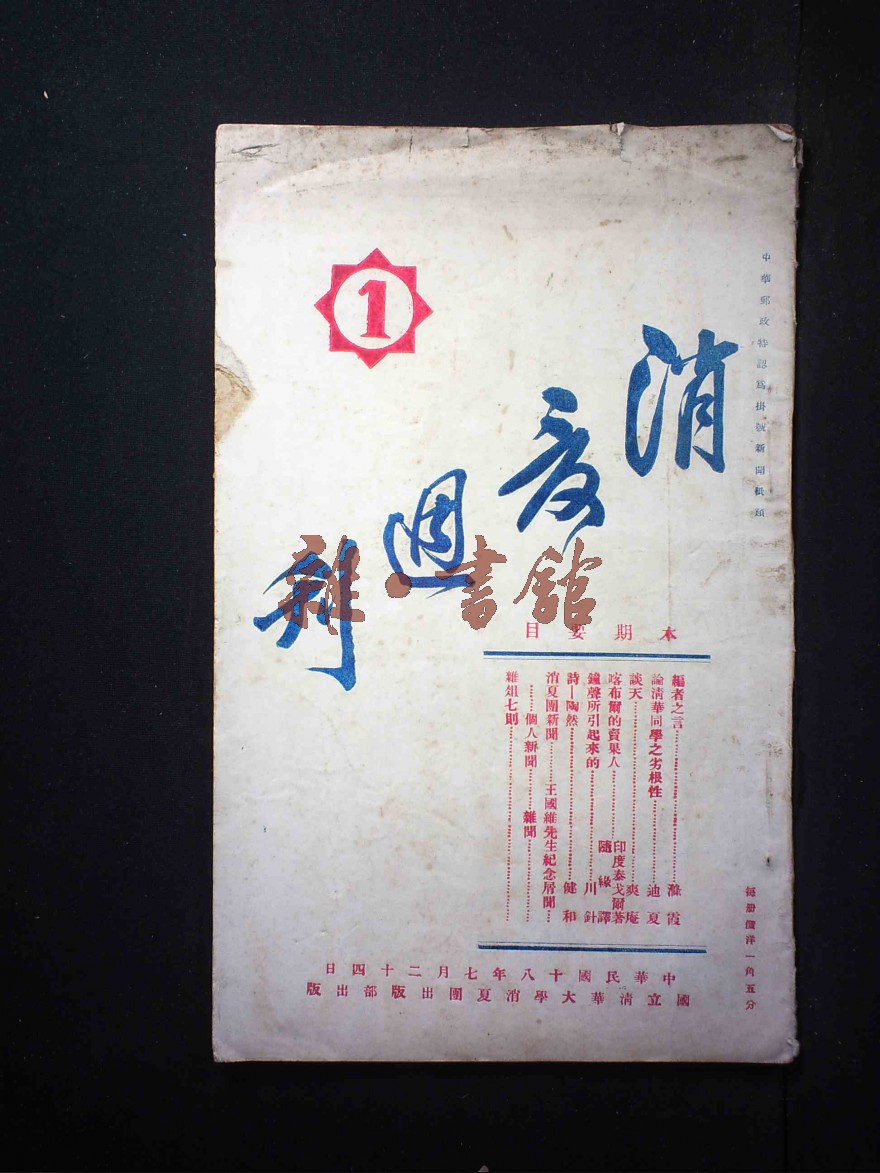 中華郵政特認爲掛號新聞紙類
1
消夏週刊
雜·書館
本期要目
編者之言……滌霞
論清華同學之劣根性……迪夏
談天……爽庵
喀布爾的賣果人……印度泰戈爾著 隨緣譯
鐘聲所引起來的……川針
詩—陶然……健和
消夏團新聞……王國維先生紀念屑聞……
……個人新聞……雜聞……
雜俎七則……
每册價洋一角五分
中華民國十八年七月二十四日
國立清華大學消夏團出版部出版